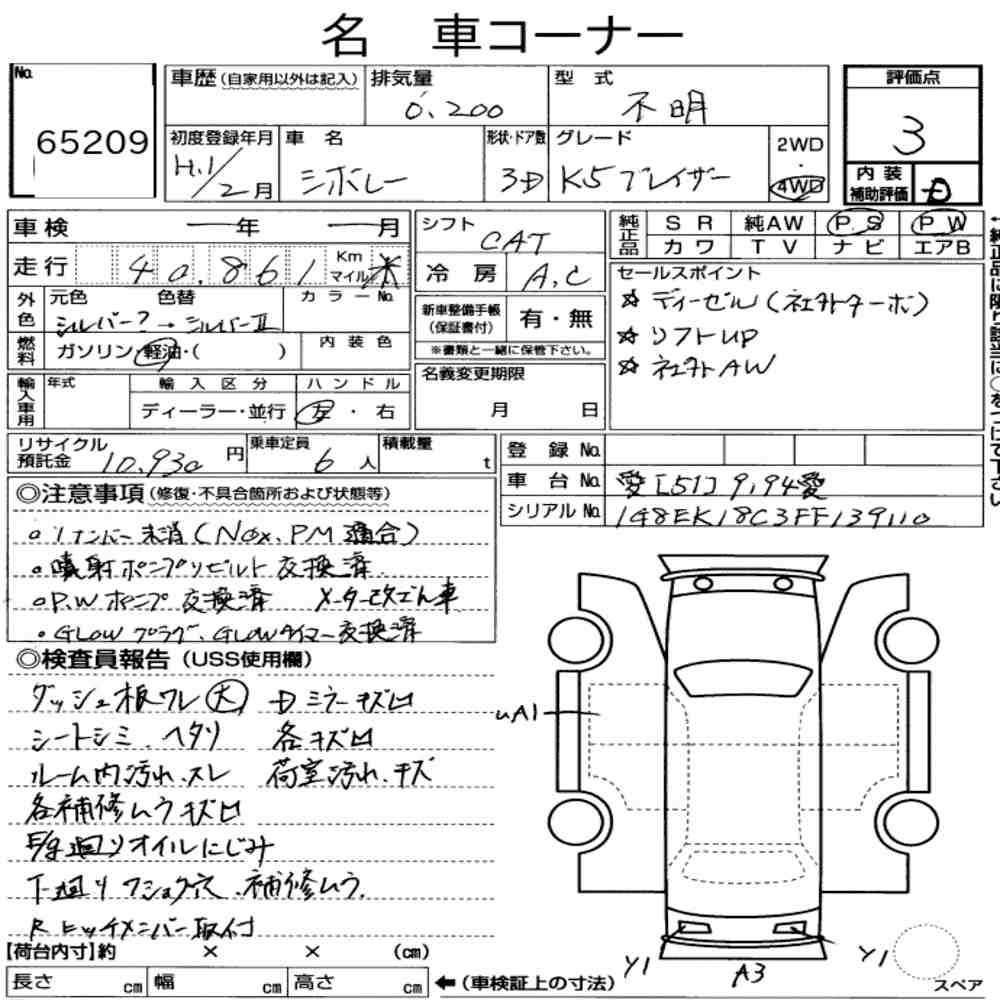 名 車コーナー
No. 65209
車歴(自家用以外は記入) 排気量 0.200 型式 不明 評価点 3
初度登録年月 H.1/2月 車名 シボレー 形状・ドア数 3D グレード K5ブレイザー 2WD・4WD 内装補助評価 D
車検 年 月 シフト CAT 純正品 SR 純AW PS PW
走行 40,861 Km マイル 冷房 A.C カワ TV ナビ エアB
外色 元色 シルバー? → 色替 シルバーⅡ カラーNo. 新車整備手帳(保証書付) 有・無 セールスポイント
☆ ディーゼル(社外ターボ)
☆ リフトUP
☆ 社外AW
燃料 ガソリン・軽油・( ) 内装色 ※書類と一緒に保管下さい。
輸入車用 年式 輸入区分 ディーラー・並行 ハンドル 左・右 名義変更期限 月 日
リサイクル預託金 10,930円 乗車定員 6人 積載量 t 登録No.
車台No. 愛[51]9,94愛
シリアルNo. 1G8EK18C3FF139110
◎注意事項(修復・不具合箇所および状態等)
。1ナンバー 未消(NOx,PM適合)
・噴射ポンプリビルト交換済
。P.Wポンプ 交換済 メーター改ざん車
・GLOWプラグ、GLOWタイマー交換済
◎検査員報告(USS使用欄)
ダッシュ板ワレ大 Dミラーキズ凹
シートシミ、ヘタリ 各キズ凹
ルーム内汚れ、スレ 荷室汚れ、キズ
各補修ムラキズ凹
E/g廻りオイルにじみ
下廻りフショク穴、補修ムラ
Rヒッチメンバー取付
uA1
Y1 A3 Y1
スペア
【荷台内寸】約 × × (cm)
長さ cm 幅 cm 高さ cm ←(車検証上の寸法)